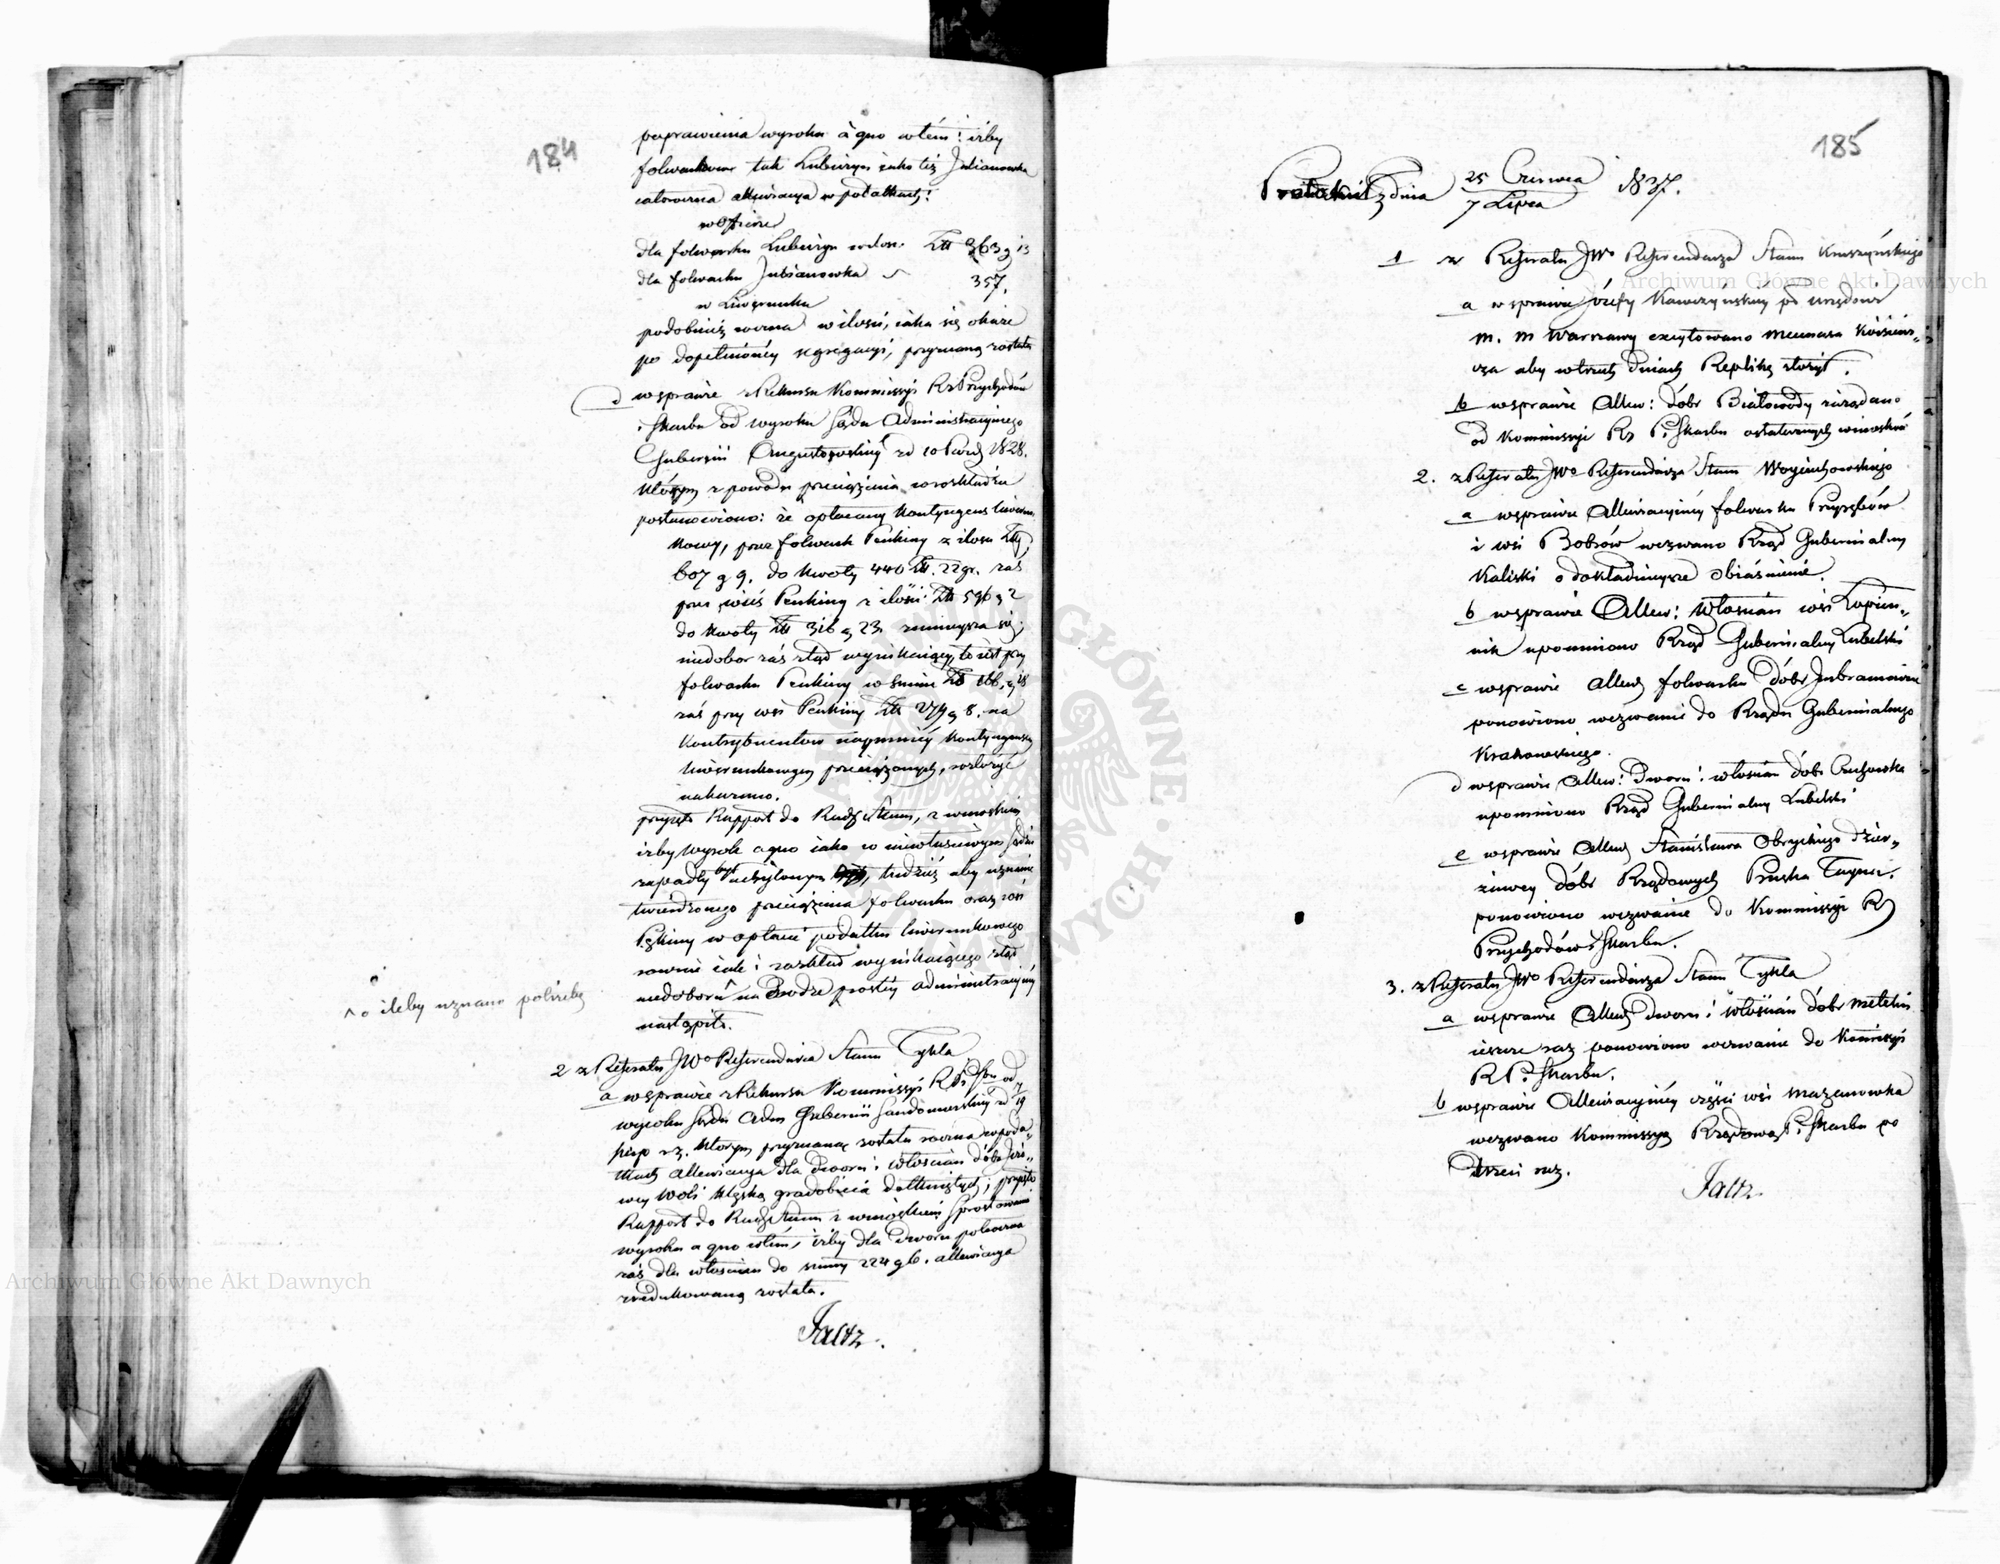 184
poprawienia wyroku à quo w tem: iżby
folwarkom tak Luburyn jako też Julianowka
całoroczna allewiacya w podatkach:
w Ofierze
dla folwarku Luburyn roczn. Złt 363 g 13
dla folwarku Julianowka " 357.
w Liwerunku
podobnież roczna w ilości, jaka się okaże
po dopełnionéy segregacyi, przyznaną została
d w sprawie z Rekursu Kommissyi R: Przychodów
i Skarbu od wyroku Sądu Administracyjnego
Gubernii Augustowskiey z d 10 Paźd. 1828.
którym z powodu przeciążenia w rozkładzie
postanowiono: że opłacany kontyngens liwerun.
kowy, przez folwark Penkiny z ilości Złt
607 g 9. do kwoty 440 Złt. 22 gr. zaś
przez wieś Penkiny z ilości Złt 596 g 2
do kwoty Złt 316 g 23. zmnieysza się;
niedobór zaś ztąd wynikaiący, to iest przy
folwarku Penkiny w summie Złt 166. g 18
zaś przy wsi Penkiny Złt 279 g 8. na
kontrybuentów naymniéy kontyngensem
liwerunkowym przeciążonych, rozłożyć
nakazano.
przyjęto Rapport do Rady Stanu, z wnioskiem
iżby wyrok a quo jako w niewłaściwym Sądzie
zapadły był uchylonym, tudzież aby uznanie
twierdzonego przeciążenia folwarku oraz wsi
Pękiny w opłacie podatku liwerunkowego
równie iak i rozkład wynikaiącego ztąd
niedoboru ^ na drodze prostéy administracyjnéy
^ o ileby uznano potrzebę
nastąpiło.
2 z Referatu JWo Referendarza Stanu Tykla
a w sprawie z Rekursu Kommissyi R. P. i Sk. od
wyroku Sądu Adm Gubernii Sandomierskiey z d 7/19
którym przyznaną została roczna w poda-
tkach allewiacya dla Dworu i włościan dóbr
wey Woli klęską gradobicia dotkniętych; przyjęto
Rapport do Rady Stanu z wnioskiem sprostowania
wyroku a quo w tém, iżby dla Dworu półroczna
zaś dla włościan do summy 224 g 6. allewiacya
zredukowaną została.
Faltz.
185
Protokół z dnia 25 Czerwca / 7 Lipca 1837.
1 z Referatu JWo Referendarza Stanu Kruszyńskiego
a w sprawie Józefy Kawczyńskiey po Urzędowi
m. M Warszawy excytowano Mecenasa
cza aby w trzech dniach Replikę złożył.
b w sprawie Allew: dóbr Białowody zażądano
od Kommissyi Rz P. i Skarbu ostatecznych wniosków
2. z Referatu JWo Referendarza Stanu Woyciechowskiego
a w sprawie Allewiacyjnéy folwarku Przyrębów
i wsi Bobrów wezwano Rząd Gubernialny
Kaliski o dokładnieysze obiaśnienie.
b w sprawie Allew: włościan wsi Łopien-
nik upomniono Rząd Gubernialny Lubelski
c w sprawie Allew: folwarku dóbr Imbramowice
ponowiono wezwanie do Rządu Gubernialnego
Krakowskiego.
d w sprawie Allew: Dworu i włościan dóbr
upomniono Rząd Gubernialny Lubelski
e w sprawie Allew: Stanisława Obryckiego dzier-
żawcy dóbr Rządowych Pruska
ponowiono wezwanie do Kommissyi R
Przychodów i Skarbu.
3. z Referatu JWo Referendarza Stanu Tykla
a w sprawie Allew: dworu i włościan dóbr Metelin
ieszcze raz ponowiono wezwanie do Kommissyi
R P. i Skarbu.
b w sprawie Allewiacyjnéy części wsi Mazanowka
wezwano Kommissyą Rządową P. i Skarbu po
trzeci raz.
Faltz
Archiwum Główne Akt Dawnych
Archiwum Główne Akt Dawnych